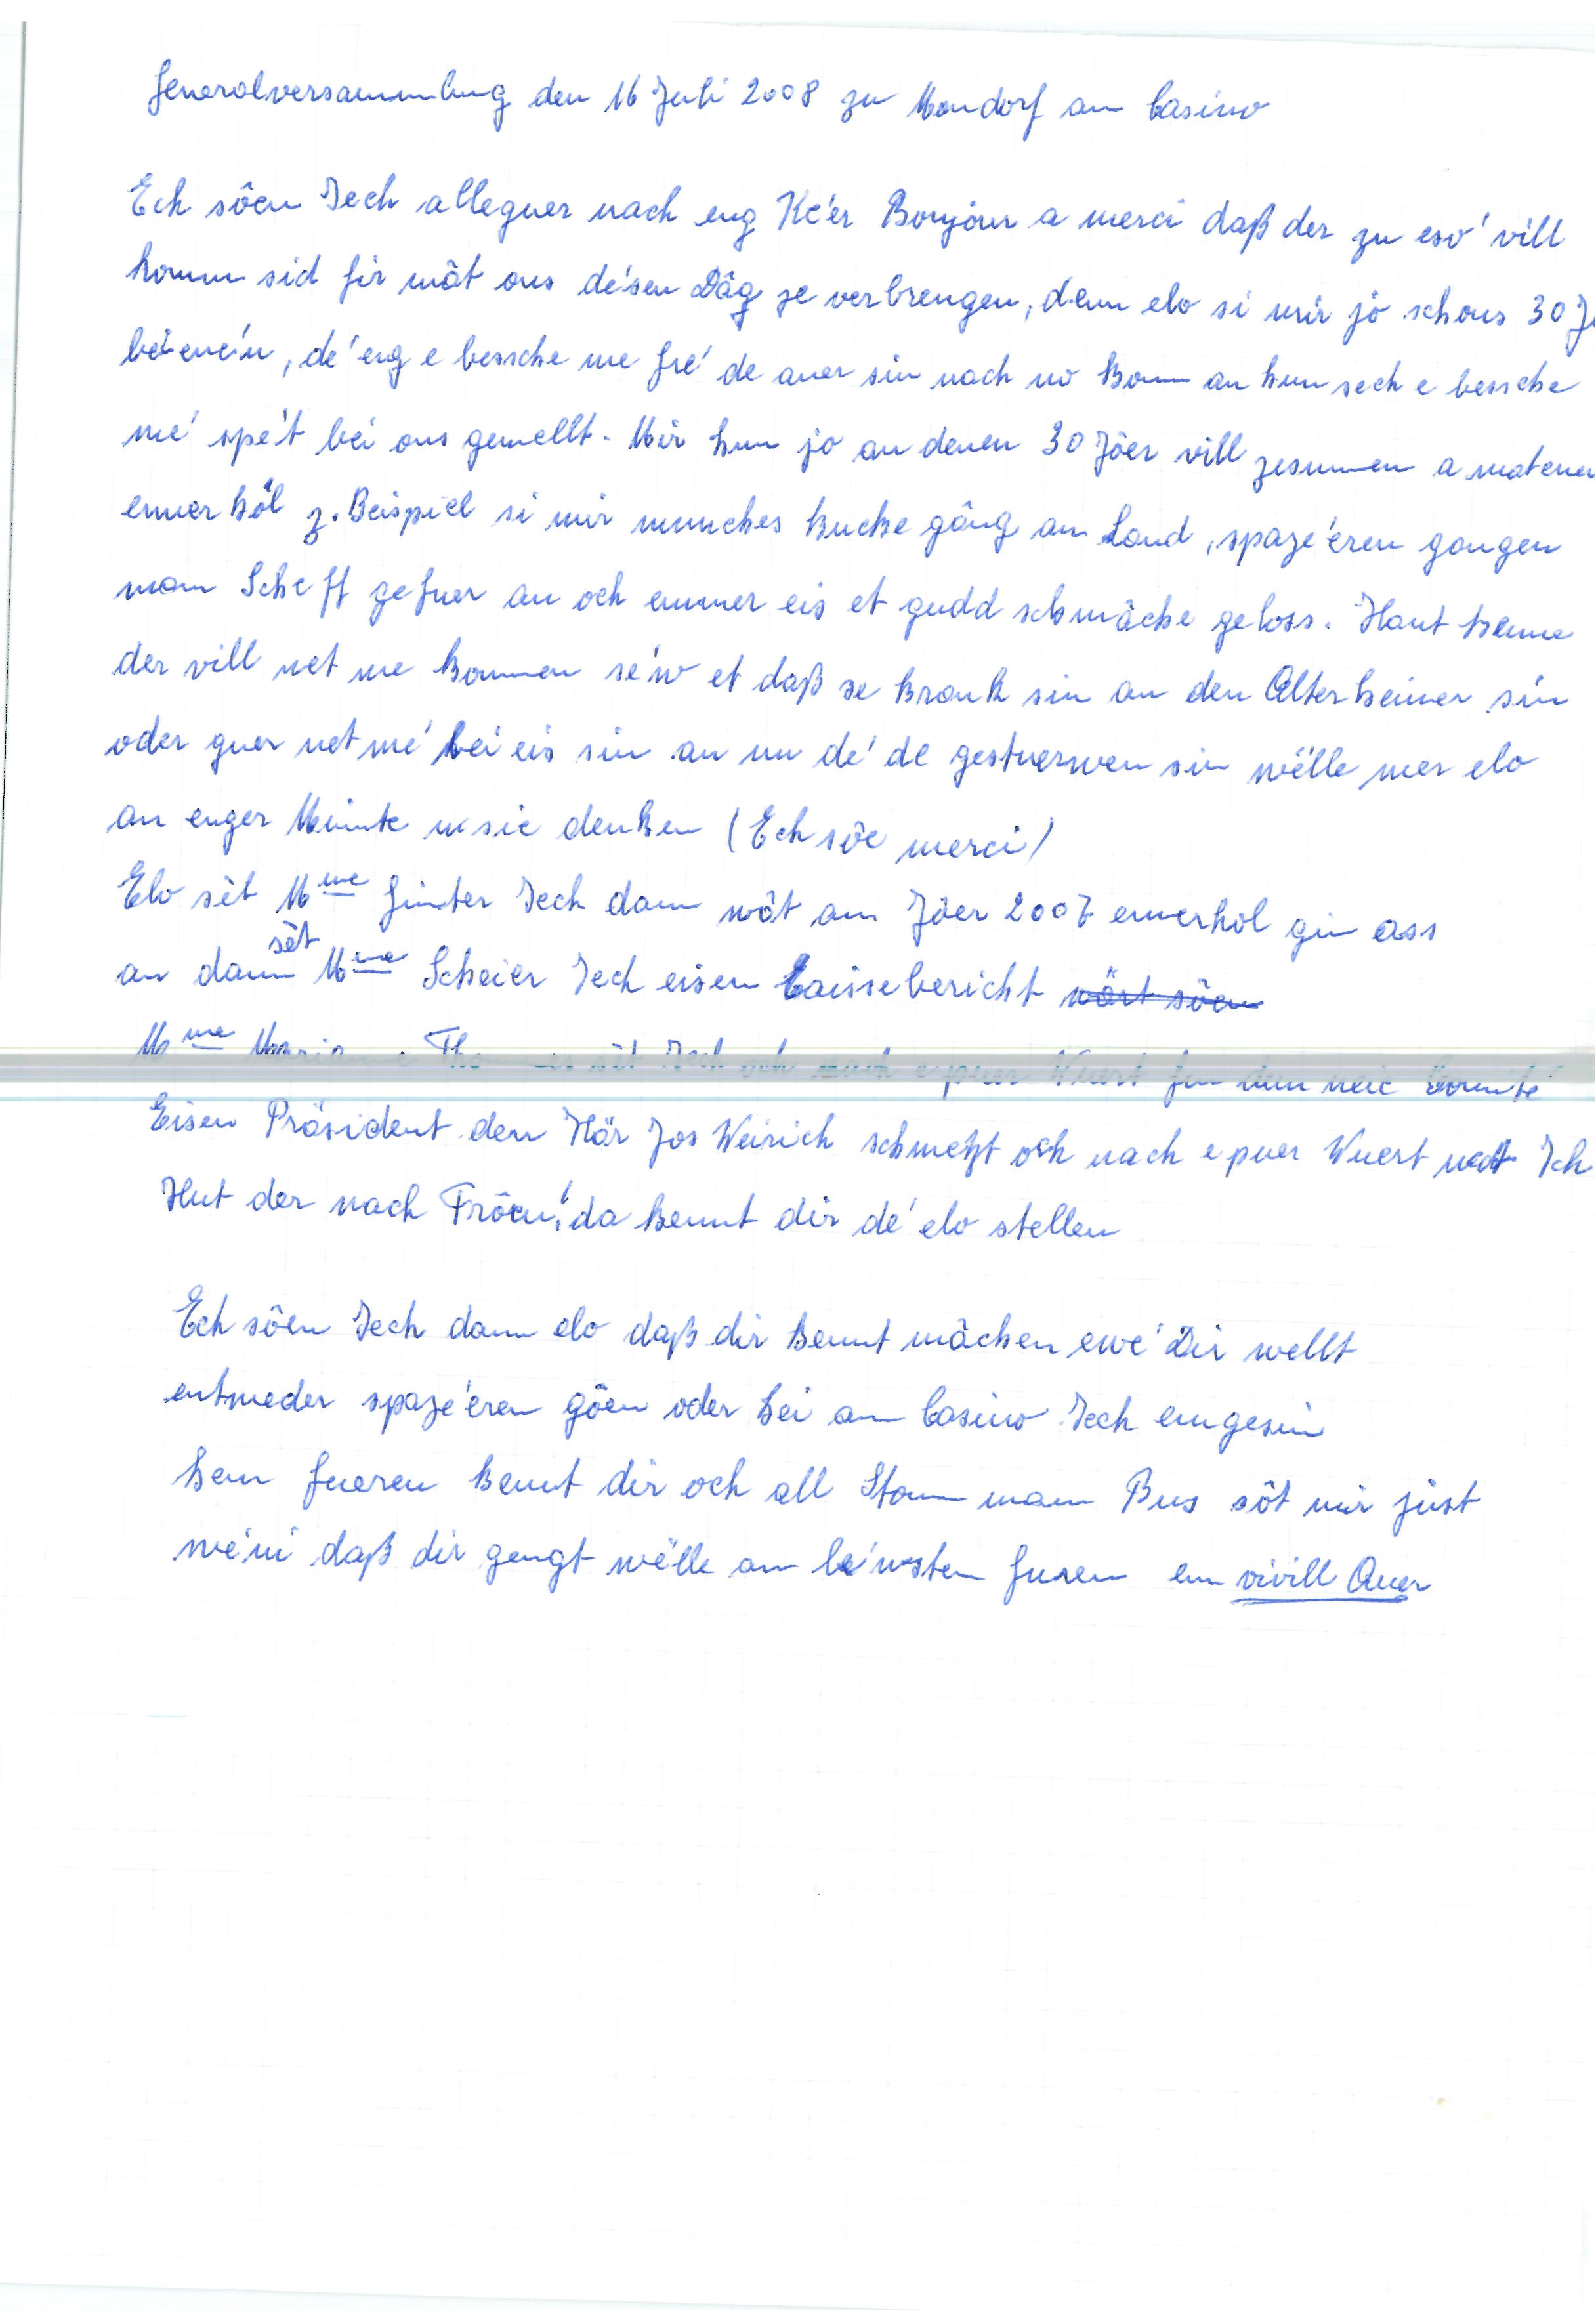 Generalversammlung den 16 Juli 2008 zu Mondorf am Casino
Ech sôen Iech alleguer nach eng Ke'er Bonjour a merci daß der zu eso' vill
komm sid fir mât ons de'sen Dâg ze verbrengen, denn elo si mir jo schons 30
bei ene'n, de' eng e bessche me fre' de aner sin nach no komm an hun sech e bessche
me' spe't bei ons gemellt. Mir hun jo an denen 30 Jôer vill zesummen a matener
enner hôl z. Beispiel si mir munches kucke gâng am Land, spaze'eren gangen
mam Scheff gefuer an och emmer eis et gudd schmâche geloss. Haut kenne
der vill net me kommen se'w et daß se krank sin an den Alterheimer sin
oder guer net me' bei eis sin an un de' de gestuerwen sin wëlle mer elo
an enger Minute u sie denken (Ech sôe merci)
Elo sèt Mme Ginter Iech dann wât am Jôer 2007 ennerhol gin ass
an dann sèt Mme Scheier Iech eisen Caissebericht wärt sôen
Mme sèt Iech och nach e puer Wuert fun dem neie Comité
Eisen Präsident den Här Jos Weirich schwetzt och nach e puer Wuert mat Ich
Hut der nach Frôen, da kennt dir de' elo stellen
Ech sôen Iech dann elo daß dir kennt mâchen ewe' Dir wellt
entweder spaze'eren gôen oder hei am Casino Iech emgesin
hem fueren kennt dir och all Stonn mam Bus sôt mir just
we'ni daß dir gengt wëlle am le'wsten fueren em vivill Auer